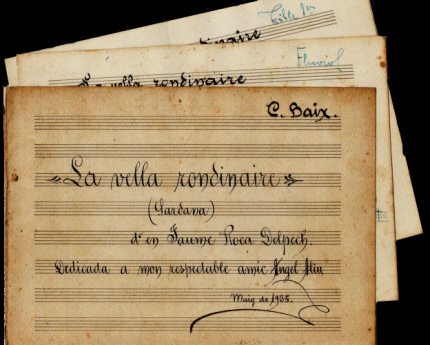 Tible 1er
Fluviol
La vella rondinaire
C. Baix.
La vella rondinaire
(Sardana)
d'en Jaume Roca Delpech.
Dedicada a mon respectable amic Angel
Maig de 1935.